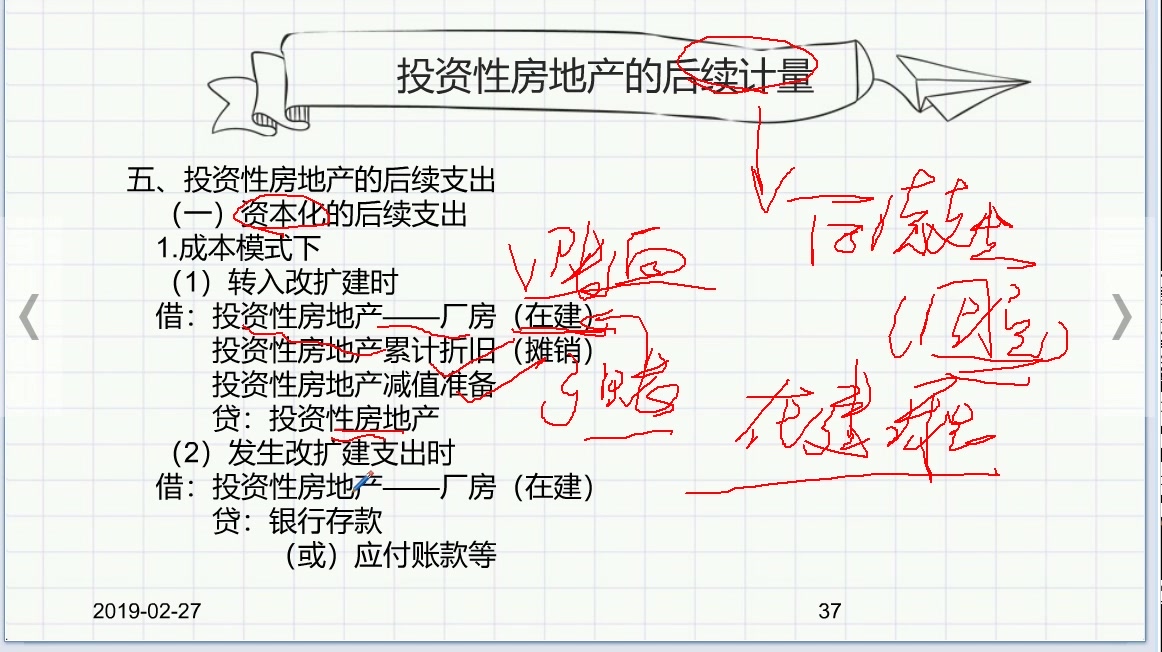 投资性房地产的后续计量
五、投资性房地产的后续支出
（一）资本化的后续支出
1.成本模式下
（1）转入改扩建时
借：投资性房地产——厂房（在建）
投资性房地产累计折旧（摊销）
投资性房地产减值准备
贷：投资性房地产
（2）发生改扩建支出时
借：投资性房地产——厂房（在建）
贷：银行存款
（或）应付账款等
在建
2019-02-27
37